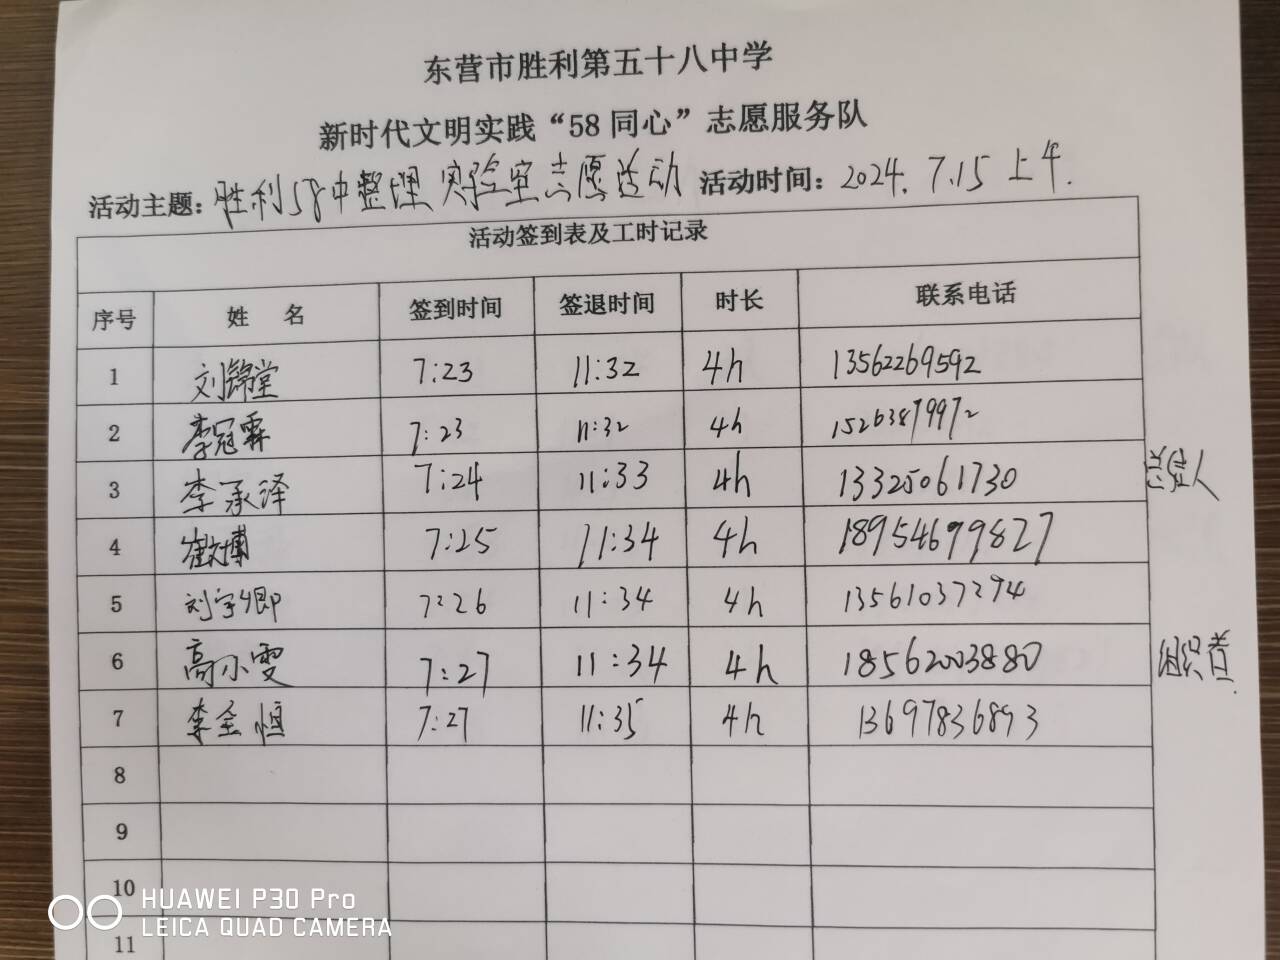 东营市胜利第五十八中学
新时代文明实践“58同心”志愿服务队
活动主题：胜利58中整理实验室志愿活动 活动时间：2024.7.15上午.
活动签到表及工时记录
序号 姓 名 签到时间 签退时间 时长 联系电话
1 刘锦堂 7:23 11:32 4h 13562269592
2 李冠霖 7:23 11:32 4h 15263879972
3 李承泽 7:24 11:33 4h 13325061730 人
4 崔文博 7:25 11:34 4h 18954699827
5 刘宇卿 7:26 11:34 4h 13561037294
6 高小雯 7:27 11:34 4h 18562003880 组织者.
7 李全恒 7:27 11:35 4h 13697836893
8
9
10
11
HUAWEI P30 Pro
LEICA QUAD CAMERA